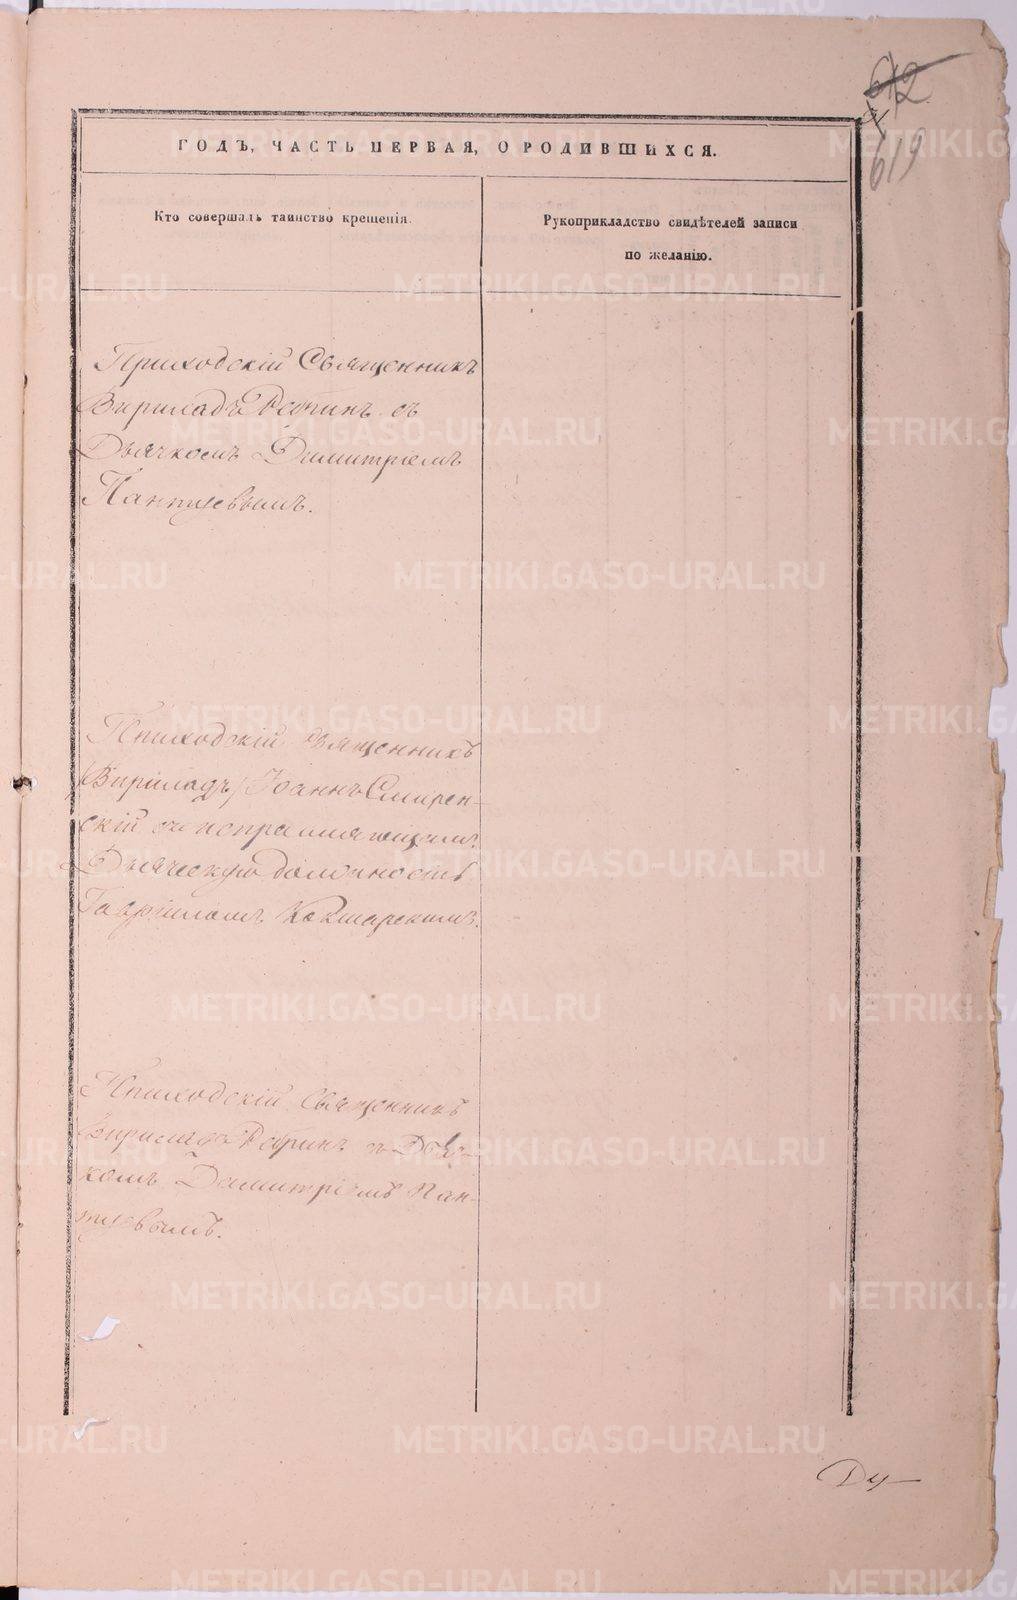 612
619
ГОДЪ, ЧАСТЬ ПЕРВАЯ, О РОДИВШИХСЯ.
Кто совершалъ таинство крещенія.
Рукоприкладство свидѣтелей записи
по желанію.
Приходскій Священникъ
Вириладъ Рєпинъ съ
Дьячкомъ Димитріемъ
Пантуевымъ.
Приходскій священникъ
Вириладъ Іоаннъ Смирен-
скій съ исправляющимъ
Дьяческую должность
Гавріиломъ
Приходскій Священникъ
Вириладъ съ Дьяч-
комъ Димитріемъ Пан-
туевымъ.
METRIKI.GASO-URAL.RU